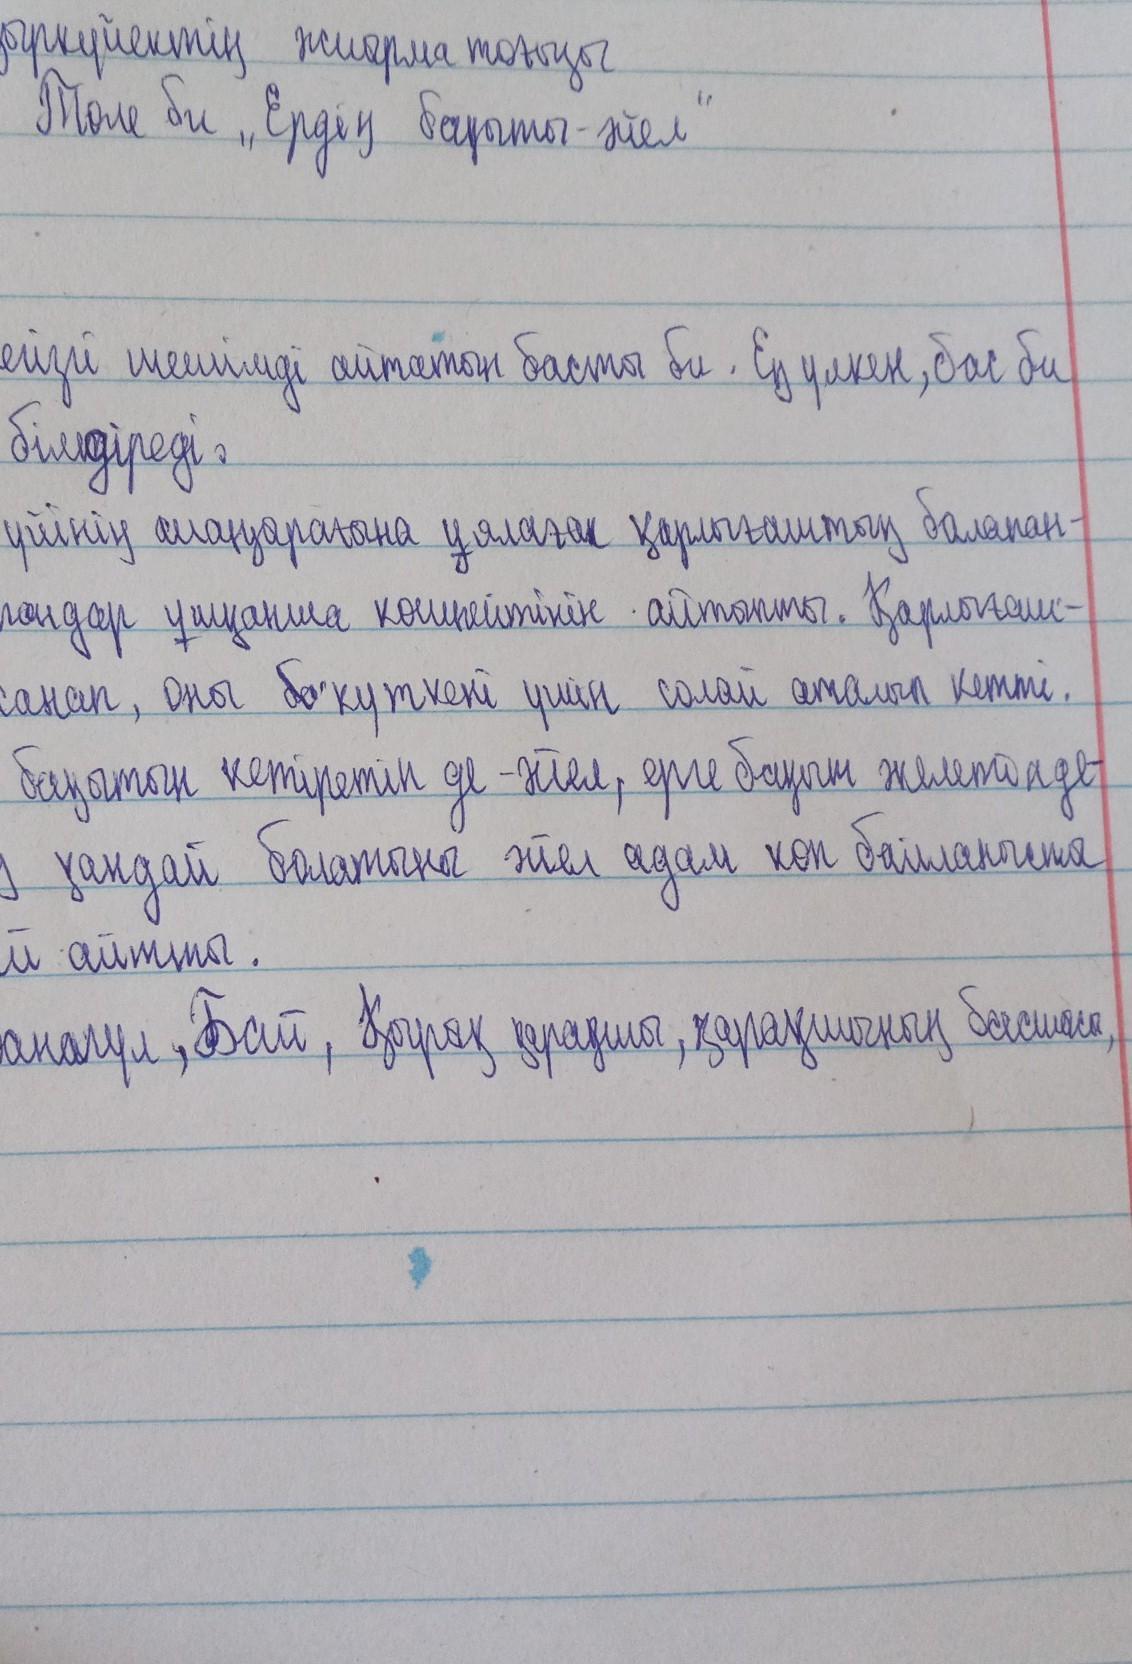 зыркүйектің жиырма тоғызы
Төле би „Ердің бақыты-әйел"
шешімді айтатын басты би. Ең үлкен, бас би
білмдіреді.
үйінің шаңарағына ұялаған қарлығаштың балапан-
ұшқанша көшпейтінін айтыпты. Қарлығаш-
санап, оны бо күткені үшін солай аталып кетті.
бақытын кетіретін де -әйел, ерге бақыт келетін де-
қандай болатыны әйел адам көп байланыста
й айтты.
Бай, Қырық қарақшы, қарақшының басшысы,